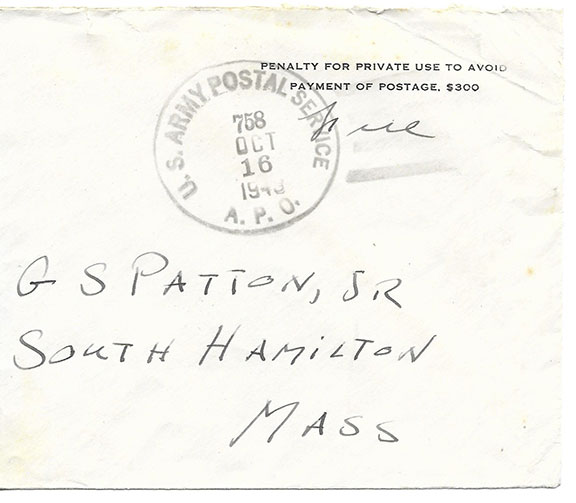 PENALTY FOR PRIVATE USE TO AVOID
PAYMENT OF POSTAGE, $300
U.S. ARMY POSTAL SERVICE
758
OCT
16
A.P.O.
G S PATTON, JR
SOUTH HAMILTON
MASS